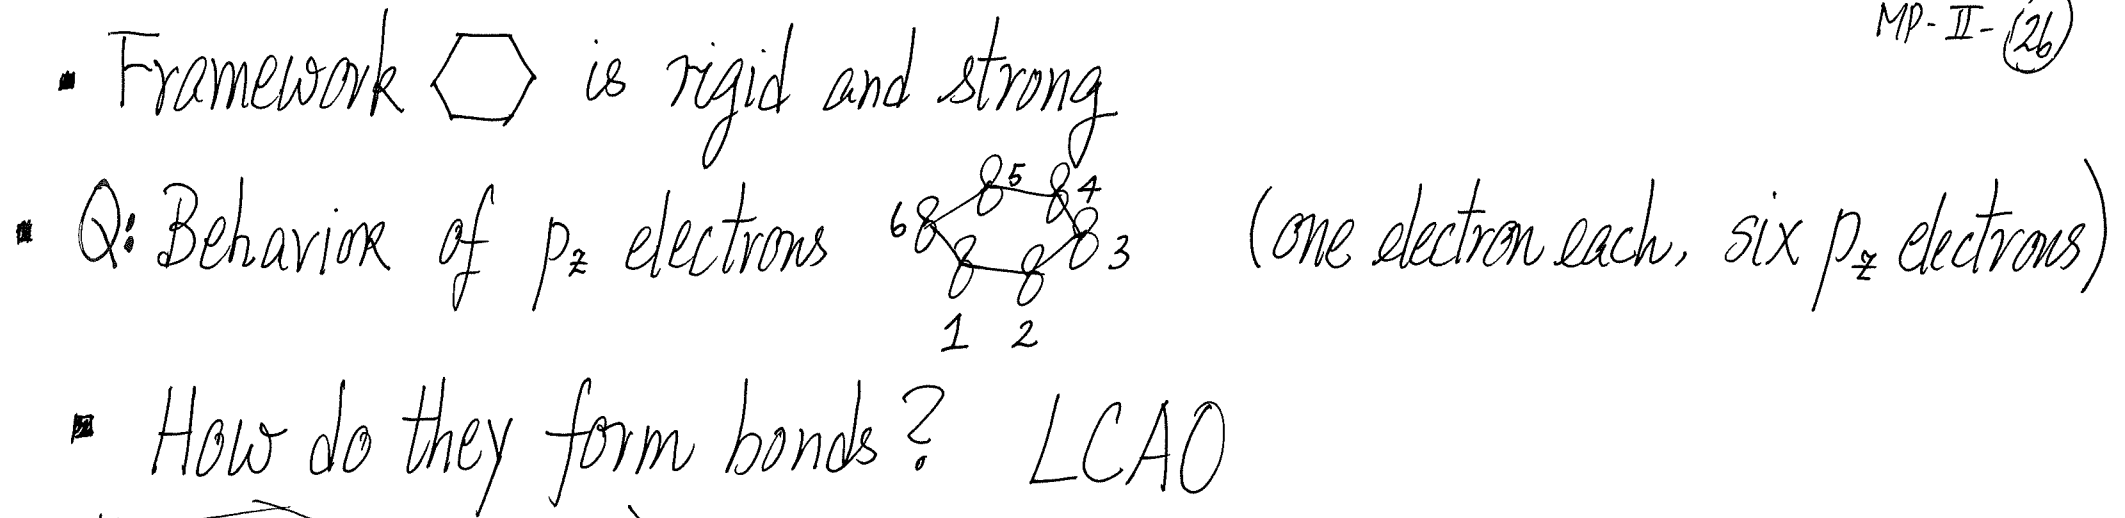 MP-II-(26)
▪ Framework is rigid and strong
▪ Q: Behavior of pz electrons 6 5 4 3 (one electron each, six pz electrons)
1 2
▪ How do they form bonds? LCAO